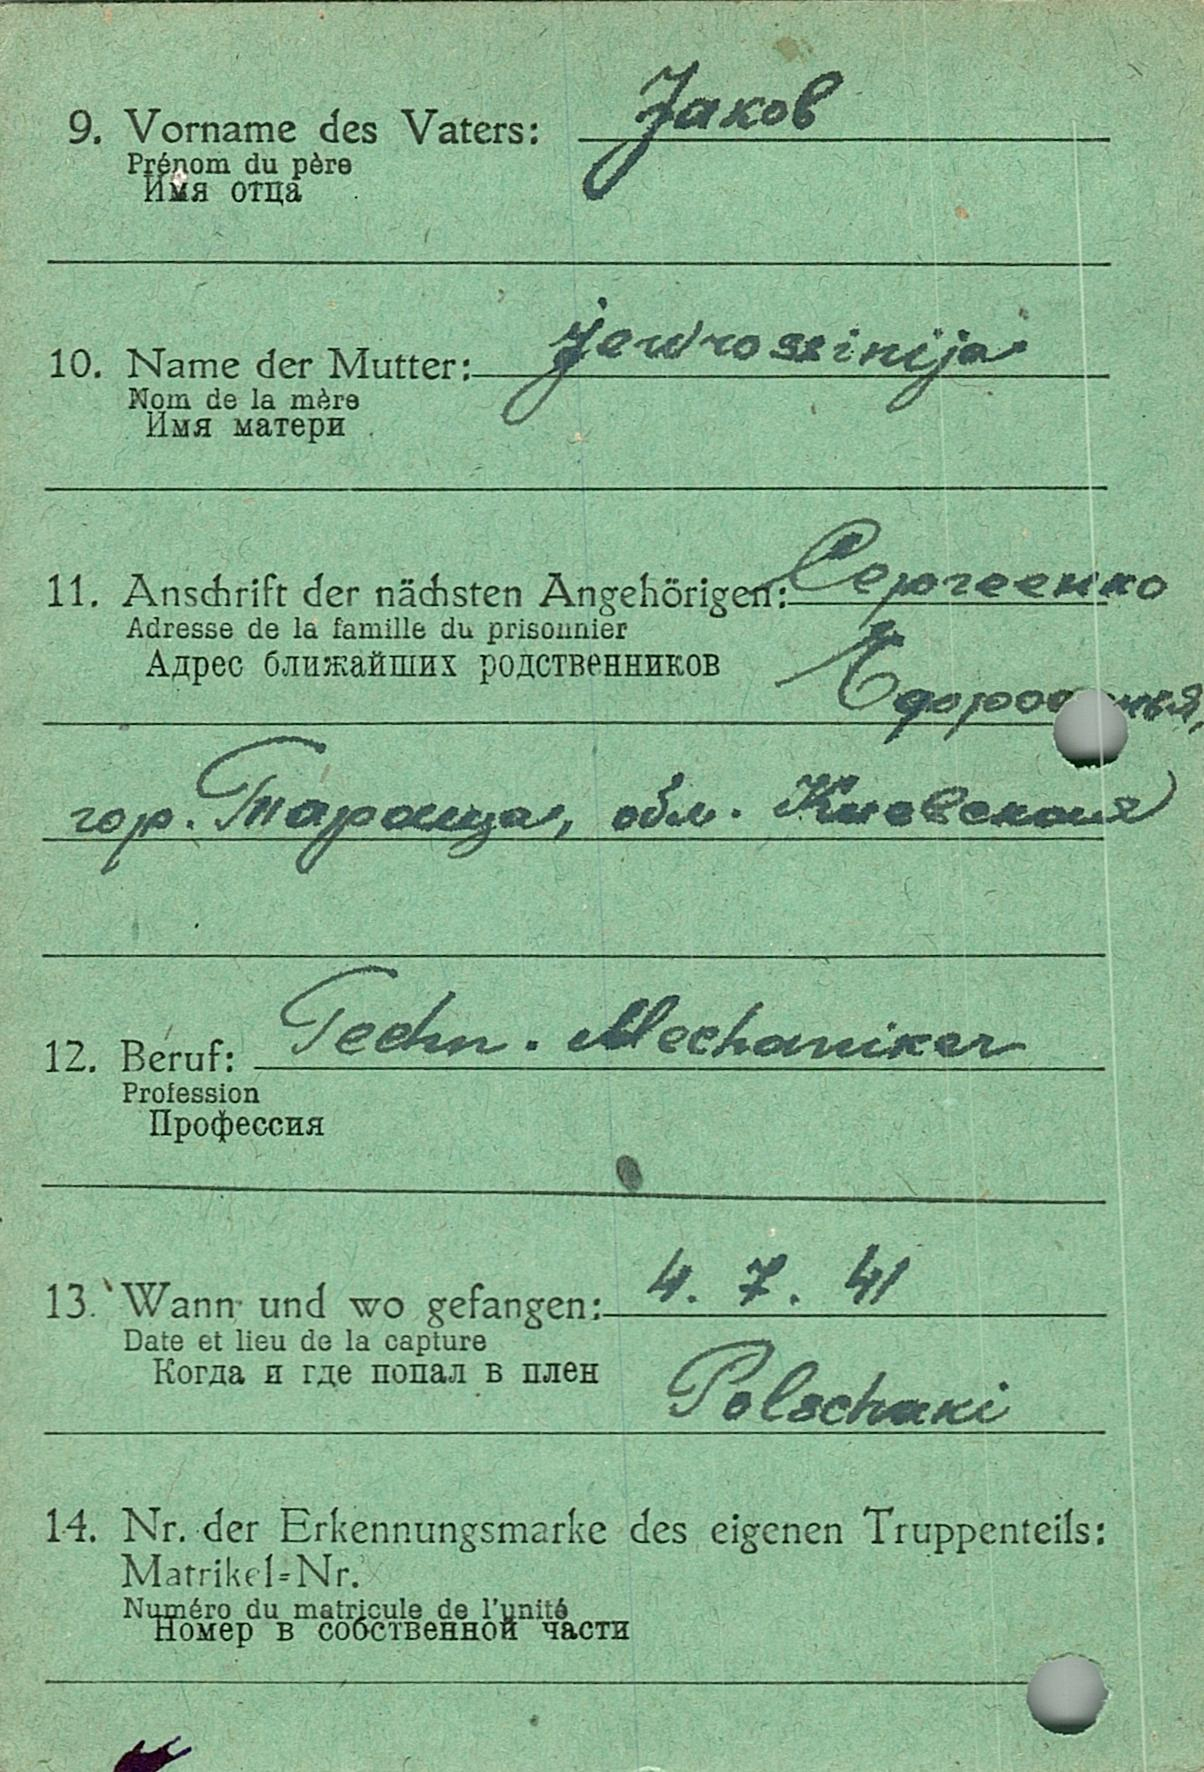 9. Vorname des Vaters: Jаков
Prénom du père
Имя отца
10. Name der Mutter: Jewrossinija
Nom de la mère
Имя матери
11. Anschrift der nächsten Angehörigen: Сергеенко
Adresse de la famille du prisonnier
Адрес ближайших родственников
гор. Тараща, обл. Киевская
12. Beruf: Techn. Mechaniker
Profession
Профессия
13. Wann und wo gefangen: 4. 7. 41
Date et lieu de la capture
Когда и где попал в плен
Polschaki
14. Nr. der Erkennungsmarke des eigenen Truppenteils:
Matrikel=Nr.
Numéro du matricule de l'unité
Номер в собственной части